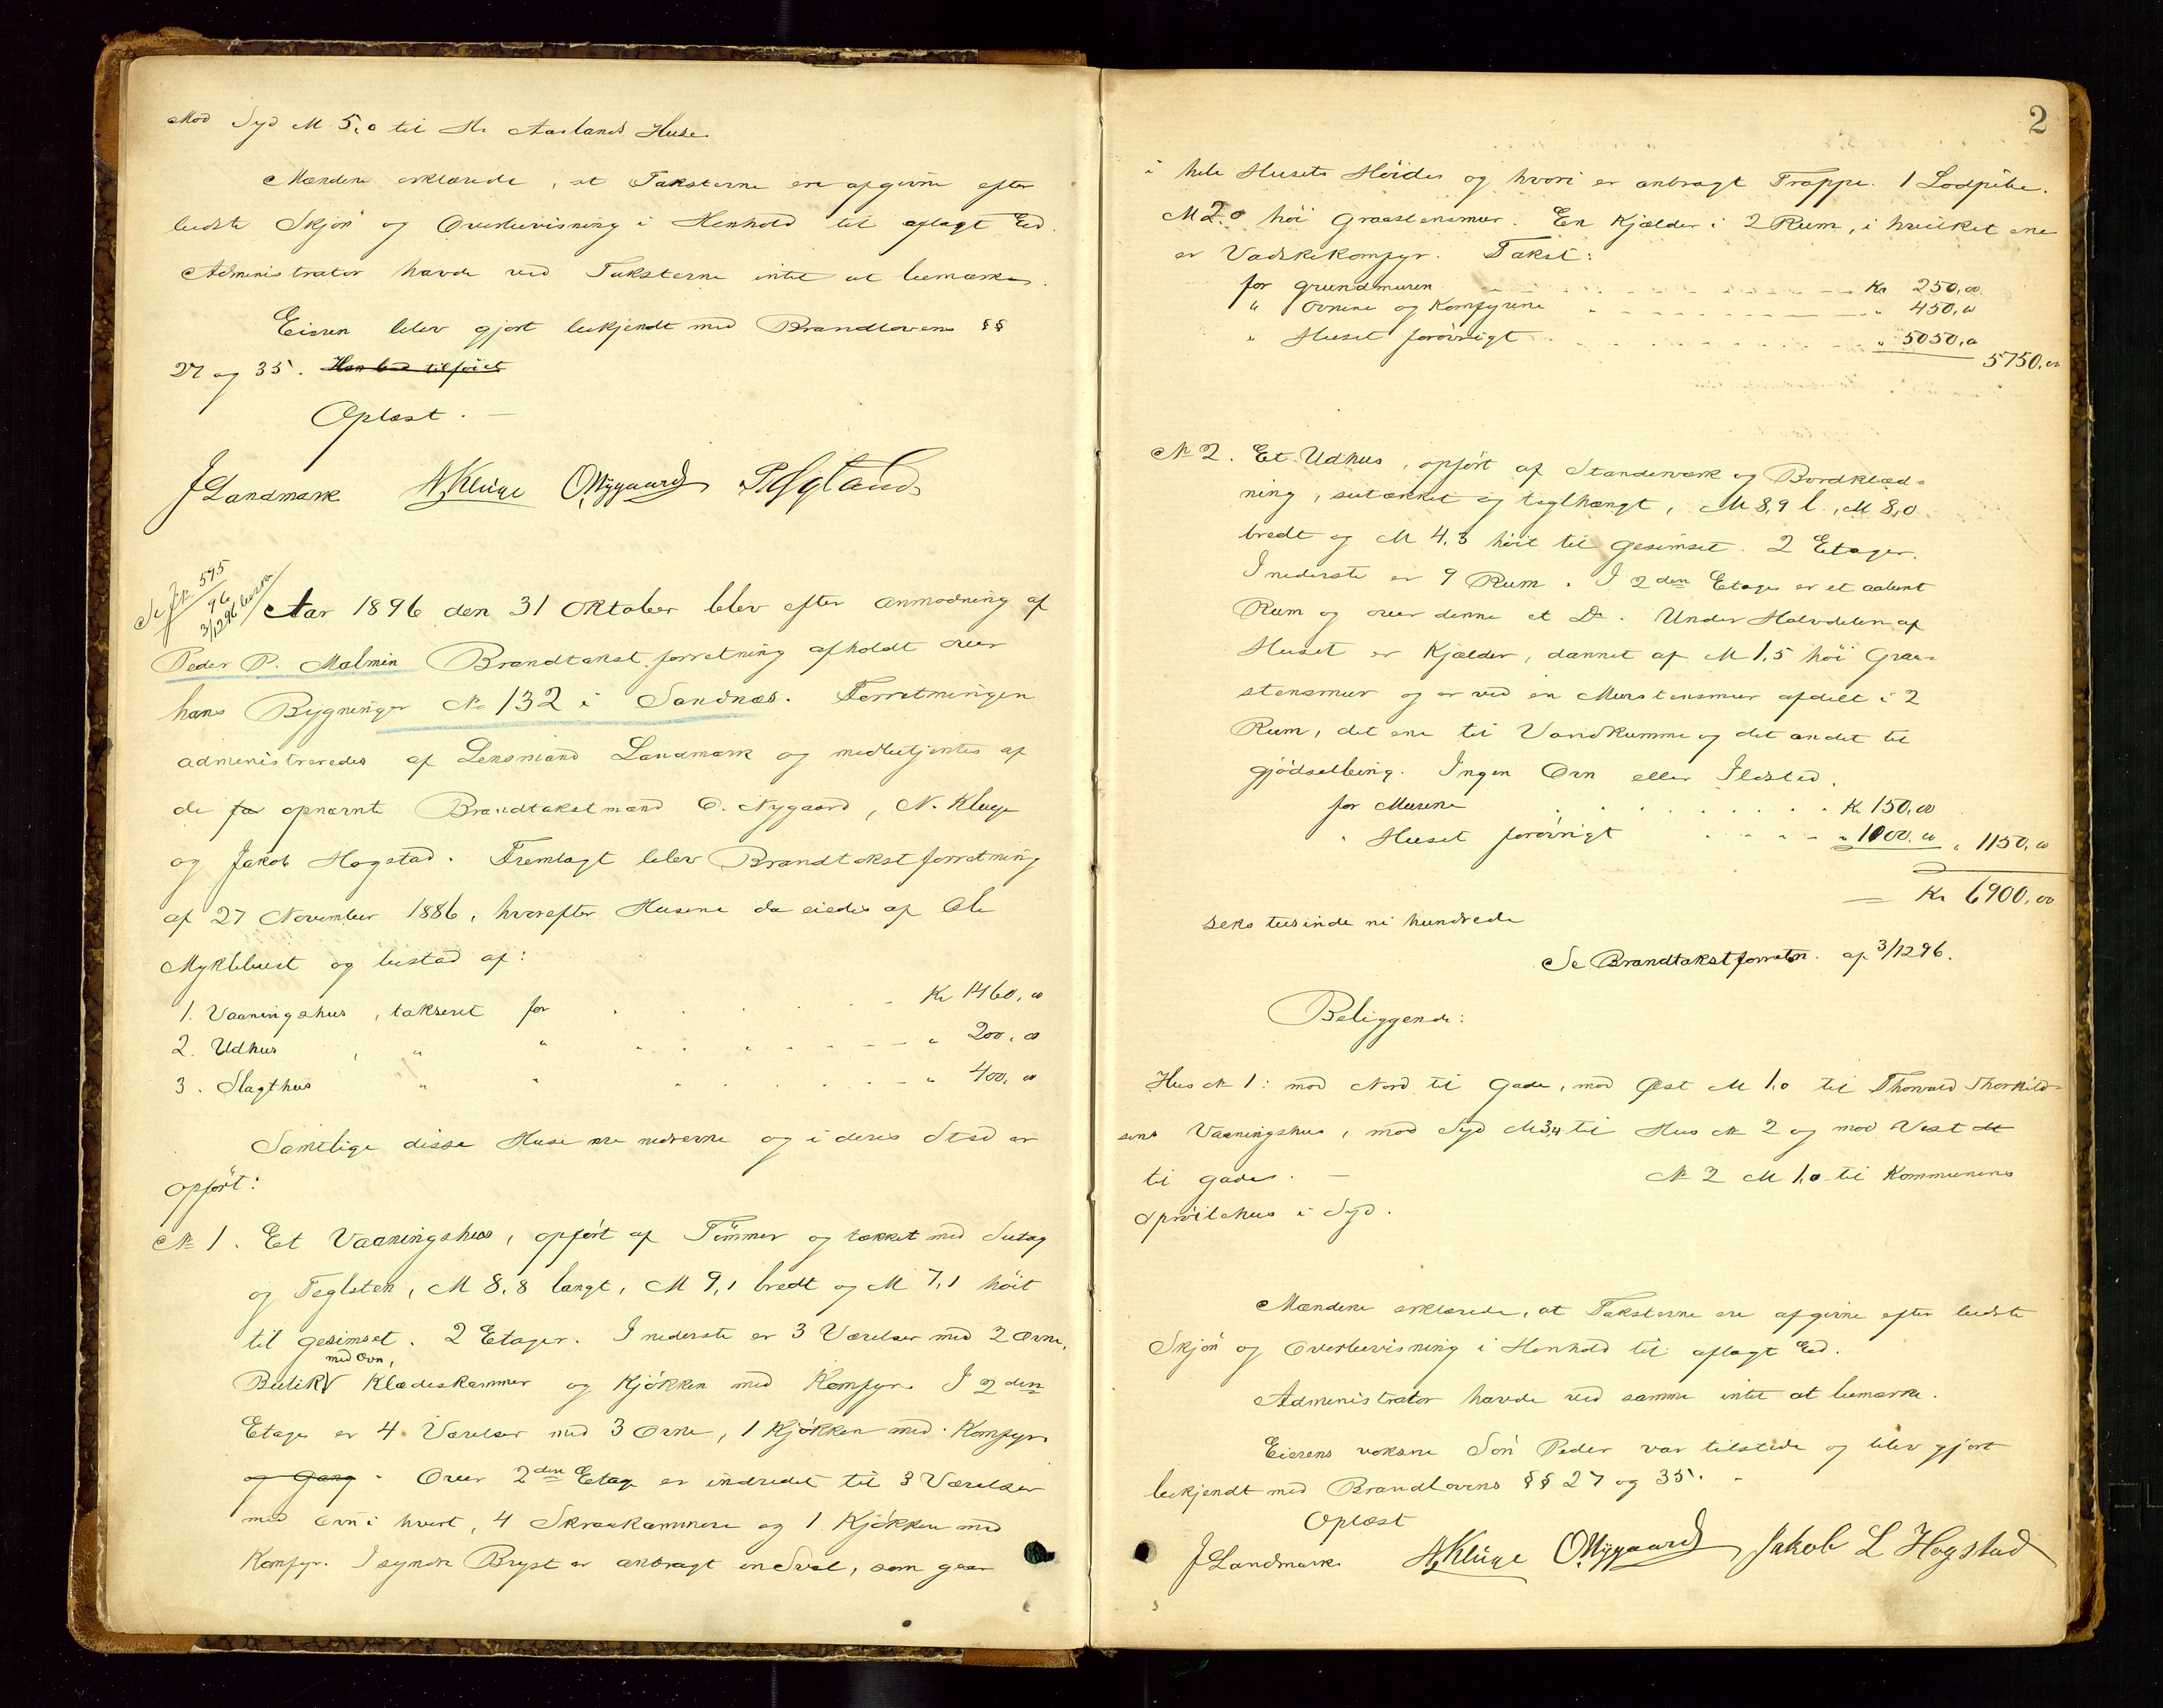 Mod Syd M 5,0 til Hr Aaslands Huse.
Mændene erklærede, at Taksterne ere afgivne efter
bedste Skjøn og Overbevisning i Henhold til aflagt Ed.
Administrator havde ved Taksterne intet at bemærke.
Eieren blev gjort bekjendt med Brandlovens §§
27 og 35. Han bad tilføiet
Oplæst. —
J Landmark N. Kluge O. Nygaard
Se fr. 595
96
3/12 96
Aar 1896 den 31 Oktober blev efter Anmodning af
Peder P. Malmin Brandtakstforretning afholdt over
hans Bygninger No 132 i Sandnæs. Forretningen
administreredes af Lensmand Landmark og medbetjentes af
de fa opnævnte Brandtakstmænd O. Nygaard, N. Kluge
og Jakob Hogstad. Fremlagt blev Brandtakstforretning
af 27 November 1886, hvorefter Husene da eiedes af Ole
Myklebust og bestod af:
1. Vaaningshus, takseret for Kr 1460,00
2. Udhus , " " " 200,00
3. Slagthus " " " 400,00
Samtlige disse Huse ere nedrevne og i deres Sted er
opført:
No 1. Et Vaaningshus, opført af Tømmer og tækket med Sutag
og Teglsten, M 8,8 langt, M 9,1 bredt og M 7,1 høit
til Gesimset. 2 Etager. I nederste er 3 Værelser med 2 Ovne,
med Ovn,
Butik Klædeskammer og Kjøkken med Komfyr. I 2den
Etage er 4 Værelser med 3 Ovne, 1 Kjøkken med Komfyr
og Gang. Over 2den Etage er indredet til 3 Værelser
med Ovn i hvert, 4 Skraakammere og 1 Kjøkken med
Komfyr. I søndre Bryst er anbragt en Sval, som gaar
2
i hele Husets Høide og hvori er anbragt Trappe. 1 Lodpibe.
M 2,0 høi Graastensmur. En Kjælder i 2 Rum, i hvilket ene
er Vadskekomfyr. Takst:
for Grundmuren Kr 250,00
" Ovnene og Komfyrene " 450,00
" Huset forøvrigt " 5050,00
5750,00
No 2. Et Udhus, opført af Standerværk og Bordklæd-
ning, sutækket og teglhængt, M 8,9 l., M 8,0
bredt og M 4,3 høit til Gesimset. 2 Etager.
I nederste er 9 Rum. I 2den Etage er et aabent
Rum og over denne et Do. Under Halvdelen af
Huset er Kjælder, dannet af M 1,5 høi Graa-
stensmur og er ved en Murstensmur afdelt i 2
Rum, det ene til Vandkumme og det andet til
Gjødselbing. Ingen Ovn eller Ildsted.
for Murene Kr 150,00
" Huset forøvrigt " 1000,00 " 1150,00
Kr 6900,00
seks tusinde ni hundrede
Se Brandtakstforretn. af 3/12 96.
Beliggende:
Hus No 1: mod Nord til Gade, mod Øst M 1,0 til Thorvald Thorkild-
sens Vaaningshus, mod Syd M 3,4 til Hus No 2 og mod Vest
til Gade. — No 2 M 1,0 til Kommunens
Sprøitehus i Syd.
Mændene erklærede, at Taksterne ere afgivne efter bedste
Skjøn og Overbevisning i Henhold til aflagt Ed.
Administrator havde ved samme intet at bemærke.
Eierens voksne Søn Peder var tilstede og blev gjort
bekjendt med Brandlovens §§ 27 og 35.
Oplæst
J Landmark N. Kluge O. Nygaard Jakob L Hogstad